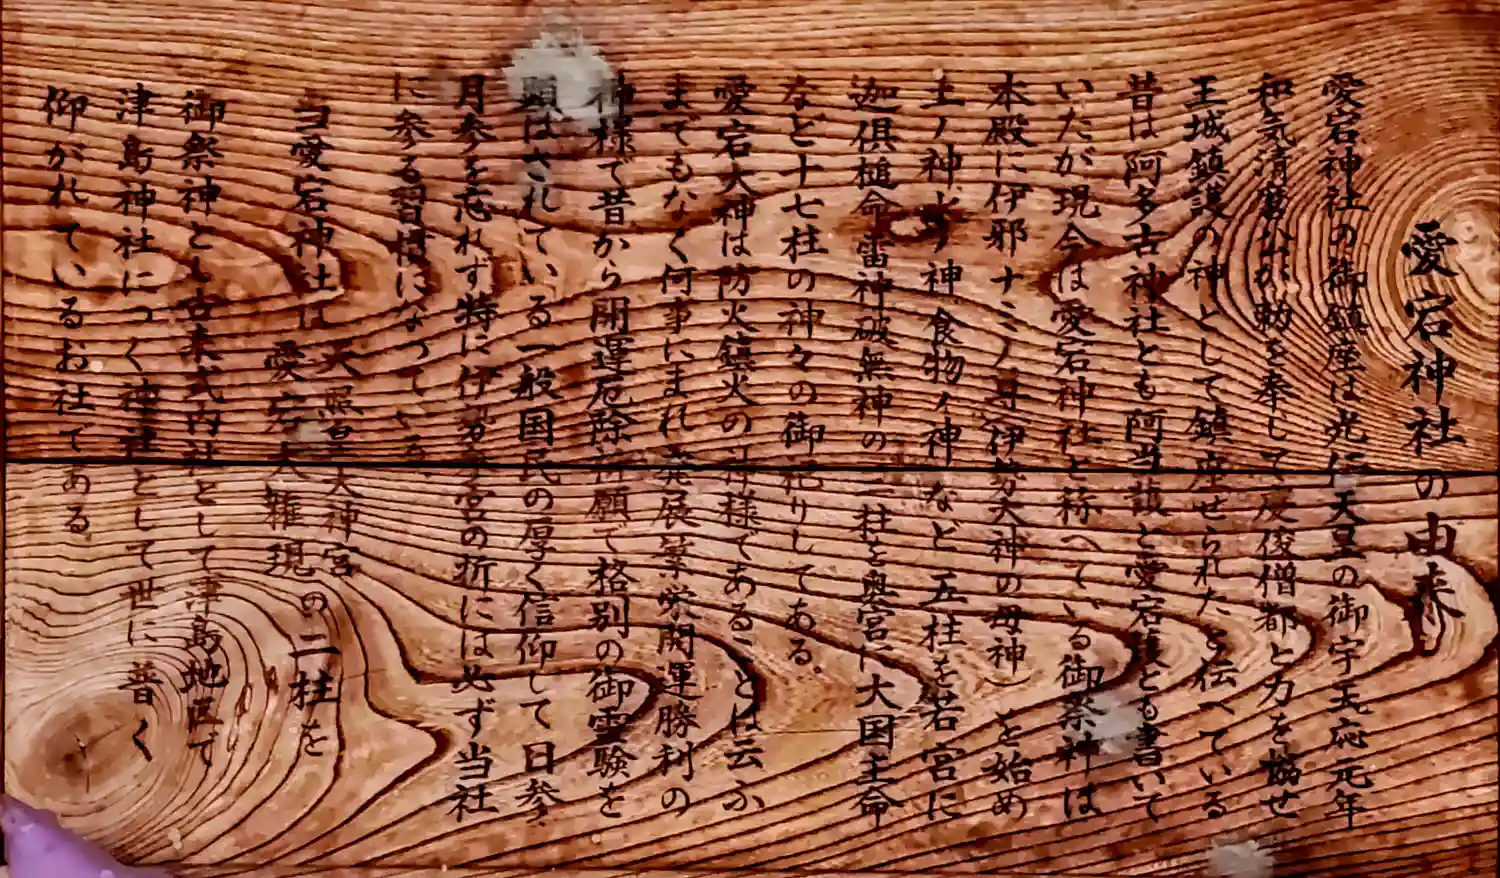 愛宕神社の由来
愛宕神社の御鎮座は光仁天皇の御宇天応元年
和気清麿公が勅を奉じて慶俊僧都と力を協せ
王城鎮護の神として鎮座せられたと伝へている
昔は阿多古神社とも阿当護と愛宕護とも書いて
いたが現今は愛宕神社と称へている御祭神は
本殿に伊邪ナミノ尊(伊勢大神の母神)を始め
土ノ神 水ノ神 食物ノ神など 五柱を若宮に
迦倶槌命 雷神 破無神の三柱を奥宮に大国主命
など十七柱の神々の御祀りしてある。
愛宕大神は防火鎮火の神様であることは云ふ
までもなく何事にまれ発展繁栄開運勝利の
神様で昔から開運厄除祈願で格別の御霊験を
顕はされている一般国民の厚く信仰して日参
月参を忘れず特に伊勢参宮の折には必ず当社
に参る習慣になっている
当愛宕神社は 天照皇大神宮
愛宕大権現 の二柱を
御祭神とし古来式内社として津島地区で
津島神社につぐ神社として世に普く
仰がれているお社である。